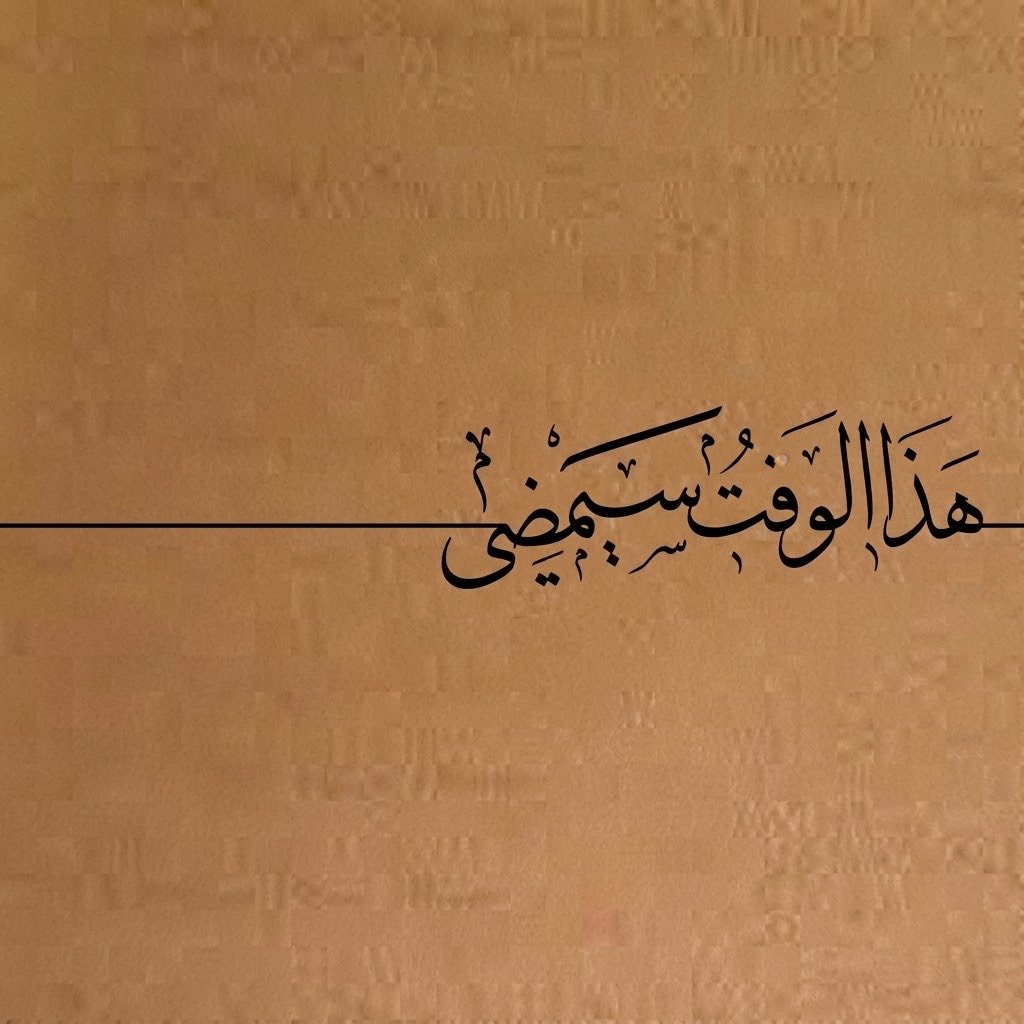 هَذَا الوَقتُ سَيمْضِي